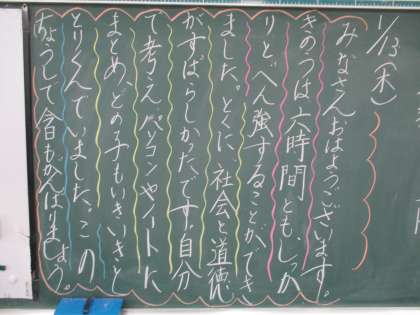 1/13(木)
みなさんおはようございます。
きのうは六時間とも、しっか
りと、べん強することができ
ました。とくに、社会と道徳
がすばらしかったです。自分
で考え、パソコンやノートに
まとめ、どの子もいきいきと
とりくんでいました。この
ちょうしで今日もがんばりましょう。